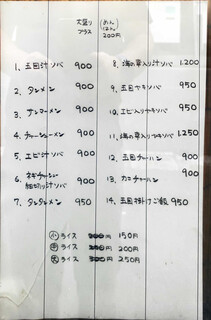 大盛り (めん ごはん)
プラス 200円
1、五目汁ソバ 900
2、タンメン 900
3、サンマーメン 900
4、チャーシューメン 900
5、エビ汁ソバ 900
6、ネギチャーシュー
細切り汁ソバ 900
7、タンタンメン 950
8、海の幸入り汁ソバ 1.200
9、五目ヤキソバ 950
10、エビ入りヤキソバ 950
11、海の幸入りヤキソバ 1.250
12、五目チャーハン 900
13、カニチャーハン 900
14、五目掛けご飯 950
小 ライス 200円 150円
中 ライス 250円 200円
大 ライス 300円 250円